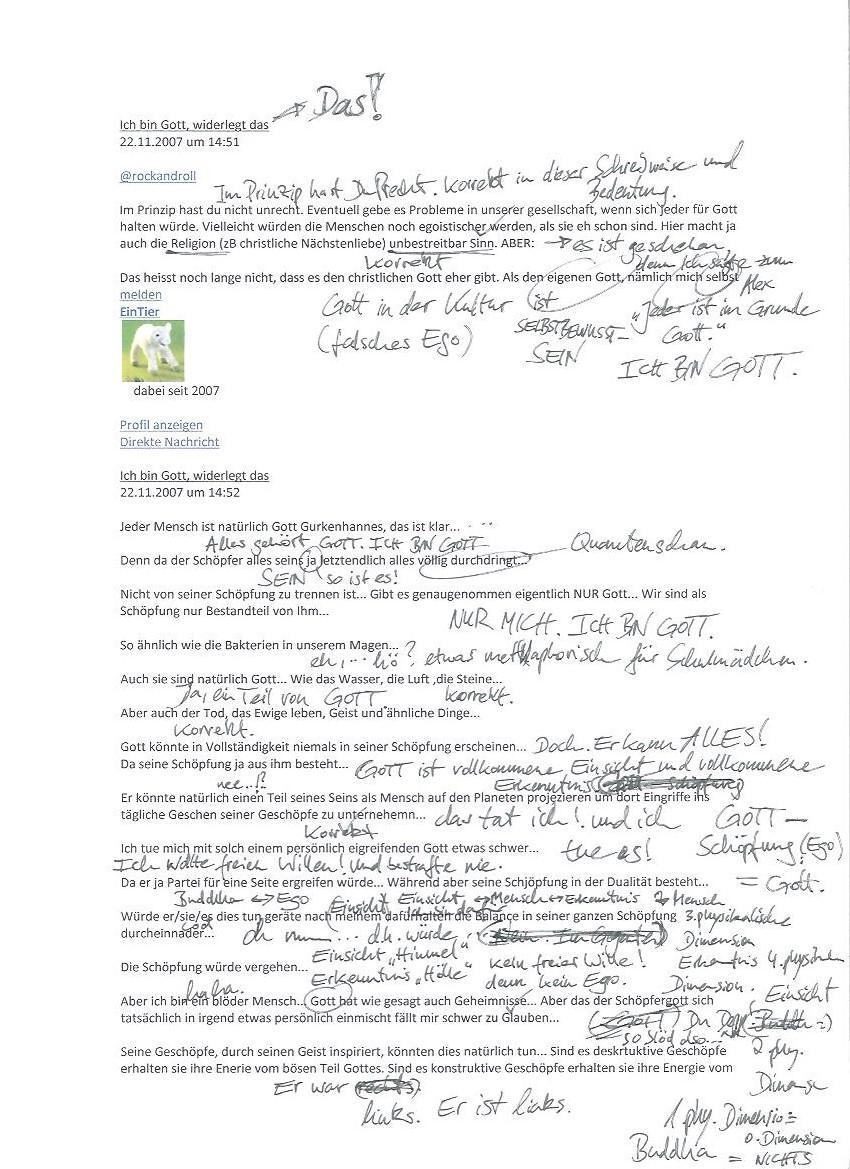 Das!
Ich bin Gott, widerlegt das
22.11.2007 um 14:51
@rockandroll
Im Prinzip hast Du Recht. Korrekt in dieser Schreibweise und
Bedeutung.
Im Prinzip hast du nicht unrecht. Eventuell gebe es Probleme in unserer gesellschaft, wenn sich jeder für Gott
halten würde. Vielleicht würden die Menschen noch egoistischer werden, als sie eh schon sind. Hier macht ja
auch die Religion (zB christliche Nächstenliebe) unbestreitbar Sinn. ABER: → es ist geschehen,
korrekt denn Ich sagte zum
Das heisst noch lange nicht, dass es den christlichen Gott eher gibt. Als den eigenen Gott, nämlich mich selbst
Alex
melden
EinTier
Gott in der Kultur ist „Jeder ist im Grunde
(falsches Ego) SELBSTBEWUSST- Gott."
SEIN ICH BIN GOTT.
dabei seit 2007
Profil anzeigen
Direkte Nachricht
Ich bin Gott, widerlegt das
22.11.2007 um 14:52
Jeder Mensch ist natürlich Gott Gurkenhannes, das ist klar...
Alles gehört GOTT. ICH BIN GOTT
Denn da der Schöpfer alles seins ja letztendlich alles völlig durchdringt...
SEIN so ist es!
Nicht von seiner Schöpfung zu trennen ist... Gibt es genaugenommen eigentlich NUR Gott... Wir sind als
Schöpfung nur Bestandteil von Ihm...
NUR MICH. ICH BIN GOTT.
So ähnlich wie die Bakterien in unserem Magen...
eh,... hö? etwas metaphorisch für Schulmädchen.
Auch sie sind natürlich Gott... Wie das Wasser, die Luft ,die Steine...
Ja, ein Teil von GOTT. korrekt.
Aber auch der Tod, das Ewige leben, Geist und ähnliche Dinge...
Korrekt.
Gott könnte in Vollständigkeit niemals in seiner Schöpfung erscheinen... Doch. Er kann ALLES!
Da seine Schöpfung ja aus ihm besteht... GOTT ist vollkommene Einsicht und vollkommene
nee..!? Erkenntnis
Er könnte natürlich einen Teil seines Seins als Mensch auf den Planeten projezieren um dort Eingriffe ihs
tägliche Geschen seiner Geschöpfe zu unternehemn... das tat ich! und ich GOTT –
Korrekt
Ich tue mich mit solch einem persönlich eigreifenden Gott etwas schwer... tue es! Schöpfung (Ego)
Ich wollte freien Willen! Und bestrafte nie.
Da er ja Partei für eine Seite ergreifen würde... Während aber seine Schjöpfung in der Dualität besteht... = Gott.
Buddha ↔ Ego Einsicht ↔ Mensch ↔ Erkenntnis Mensch
Würde er/sie/es dies tun geräte nach meinem dafürhalten die Balance in seiner ganzen Schöpfung 3. physikalische
durcheinnader... oh nun... d.h. würde Dimension
Einsicht „Himmel" kein freier Wille! Erkenntnis 4. physikalische
Die Schöpfung würde vergehen...
Erkenntnis „Hölle" denn kein Ego. Dimension.
haha. Einsicht
Aber ich bin ein blöder Mensch... Gott hat wie gesagt auch Geheimnisse... Aber das der Schöpfergott sich
tatsächlich in irgend etwas persönlich einmischt fällt mir schwer zu Glauben...
so blöd
Seine Geschöpfe, durch seinen Geist inspiriert, könnten dies natürlich tun... Sind es deskrtuktive Geschöpfe
2 phy.
erhalten sie ihre Enerie vom bösen Teil Gottes. Sind es konstruktive Geschöpfe erhalten sie ihre Energie vom
Er war
links. Er ist links.
1 phy. Dimension =
0. Dimension
Buddha = NICHTS